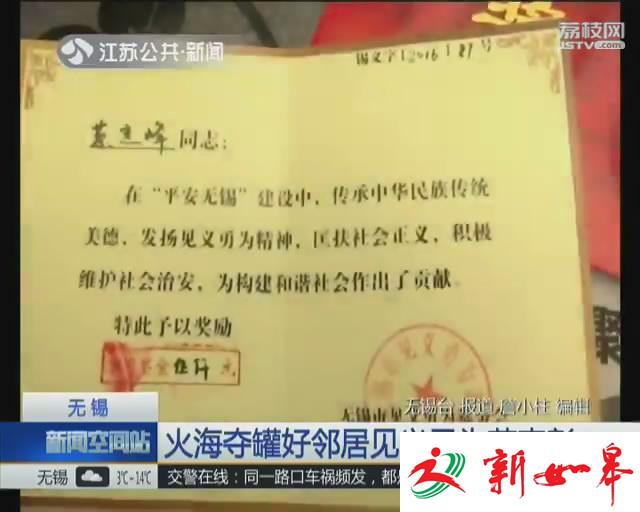 江苏公共·新闻
荔枝网
JSTV.com
锡义字[2016]81号
峰同志：
在“平安无锡”建设中，传承中华民族传统
美德，发扬见义勇为精神，匡扶社会正义，积极
维护社会治安，为构建和谐社会作出了贡献
特此予以奖励
金伍仟元
无锡市见义勇为
无锡台 报道 詹小柱 编辑
无锡
新闻空间站
火海夺罐好邻居见义勇为
无锡 3℃-14℃
交警在线：同一路口车祸频发，都是
新如皋